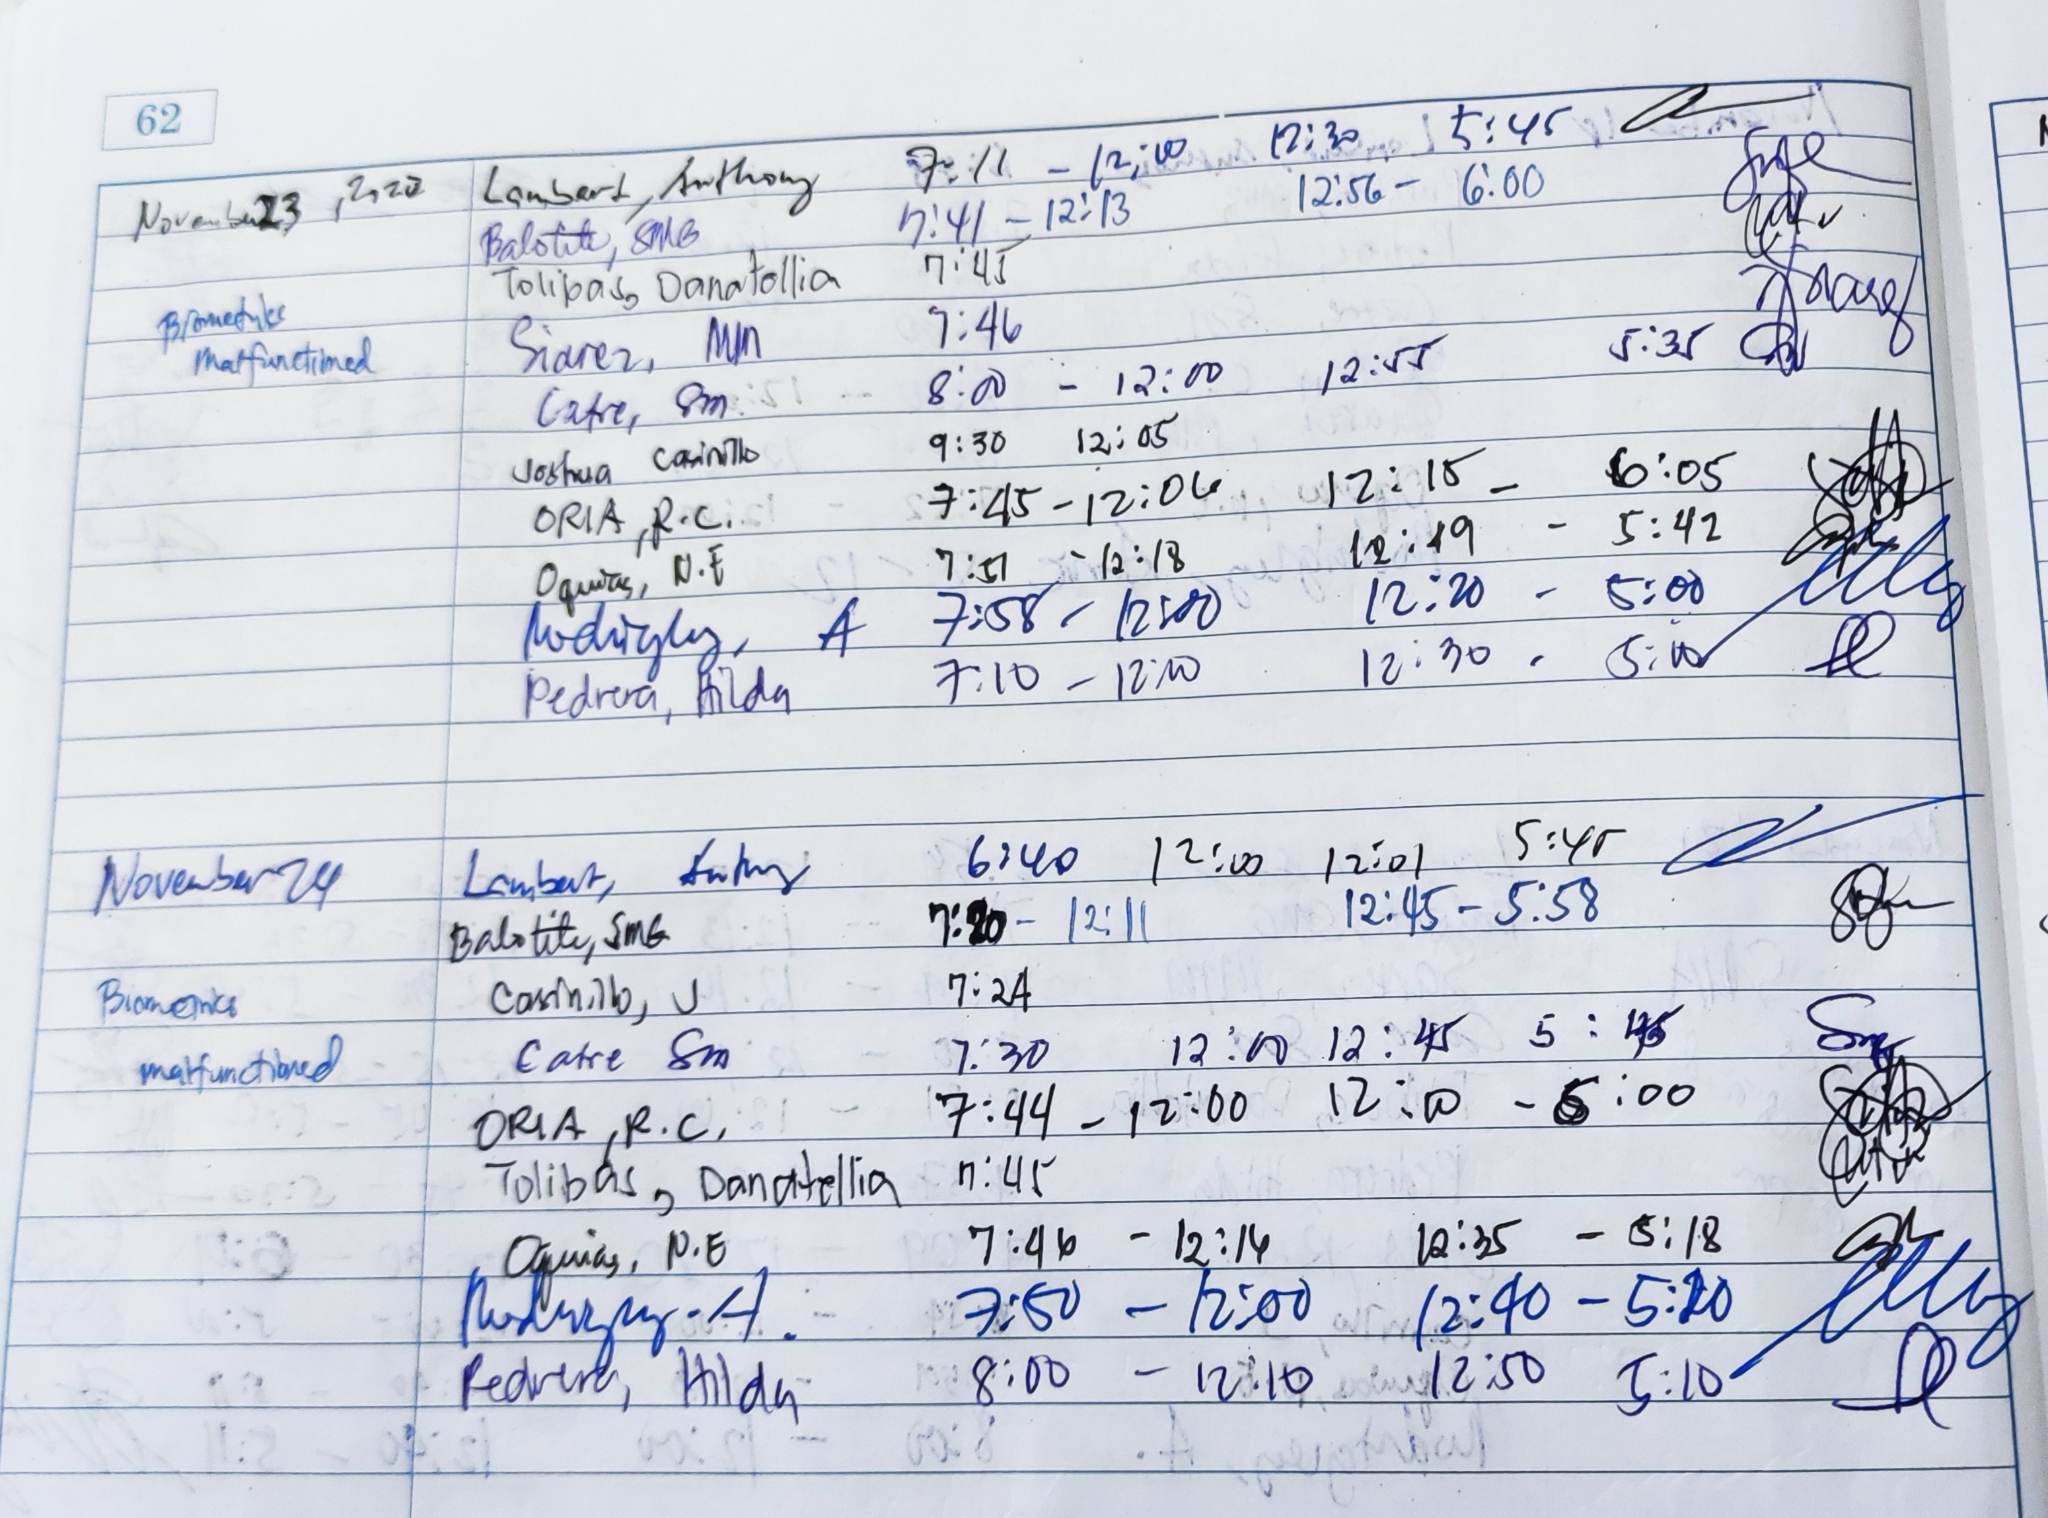 62
November 23, 2020 Lambert, Anthony 7:11 - 12:00 12:30 5:45
Balotite, SMG 7:41 - 12:13 12:56 - 6:00
Tolibas, Danatollia 7:45
Biometrics Siarez, MM 7:46
malfunctioned Catre, Sm. 8:00 - 12:00 12:55 5:35
Joshua Casinillo 9:30 12:05
ORIA, R.C. 7:45 - 12:06 12:15 - 6:05
Oquias, N.E 7:51 - 12:18 12:19 - 5:42
A 7:58 - 12:00 12:20 - 5:00
Pedrera, Hilda 7:10 - 12:10 12:30 - 5:10
November 24 Lambert, Anthony 6:40 12:00 12:01 5:45
Balotite, SMG 7:20 - 12:11 12:45 - 5:58
Biometrics Casinillo, J 7:24
malfunctioned Catre Sm 7:30 12:00 12:45 5:45
ORIA, R.C. 7:44 - 12:00 12:10 - 6:00
Tolibas, Danatellia 7:45
Oquias, N.E 7:46 - 12:14 12:35 - 5:18
A. 7:50 - 12:00 12:40 - 5:20
Pedrera, Hilda 8:00 - 12:10 12:50 5:10